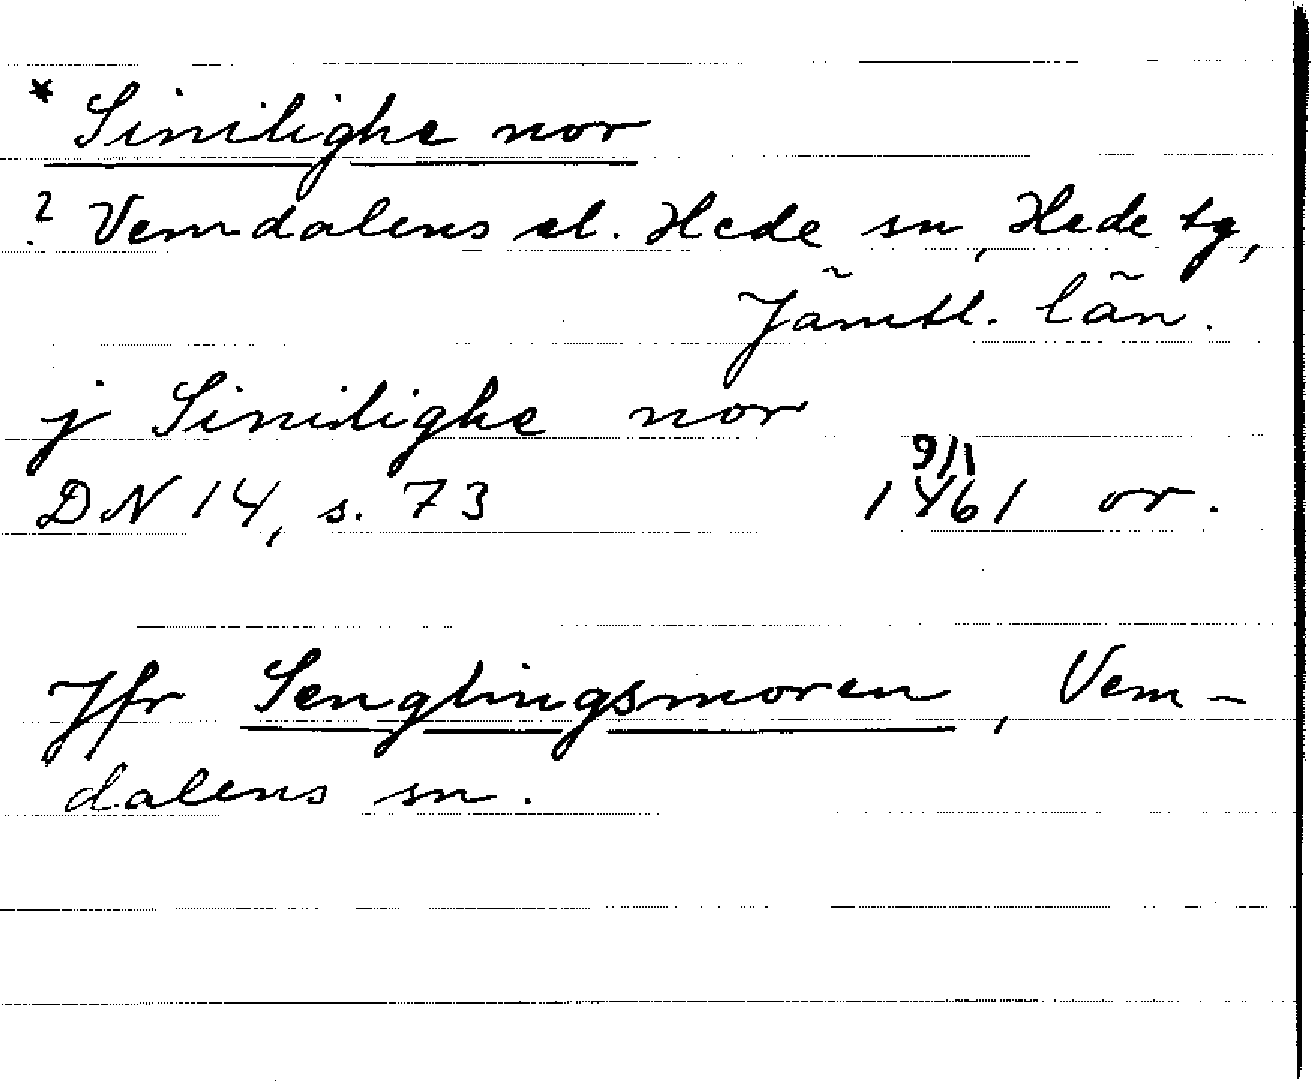 * Sinilighe nor
? Vemdalens el. Hede sn, Hede tg,
Jämtl. län.
j Sinilighe nor
9/1
DN 14, s. 73 1461 or.
Jfr Senglingsmoren, Vem-
dalens sn.